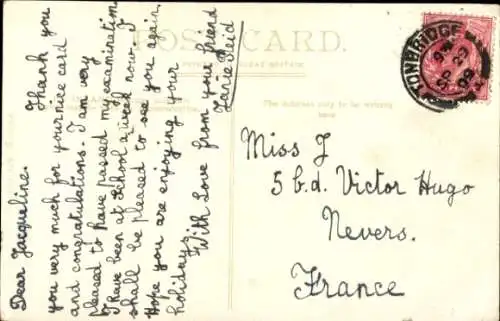 POST CARD.
The Address only to be written
here
TONBRIDGE
9
SP 29
Dear Jacqueline.
Thank you
you very much for your nice card
and congratulations. I am very
pleased to have passed my examination
I have been at School a week now. I
shall be pleased to see you again.
Hope you are enjoying your
holidays.
With Love from your friend
Janie Reid
Miss J
5 b.d. Victor Hugo
Nevers.
France